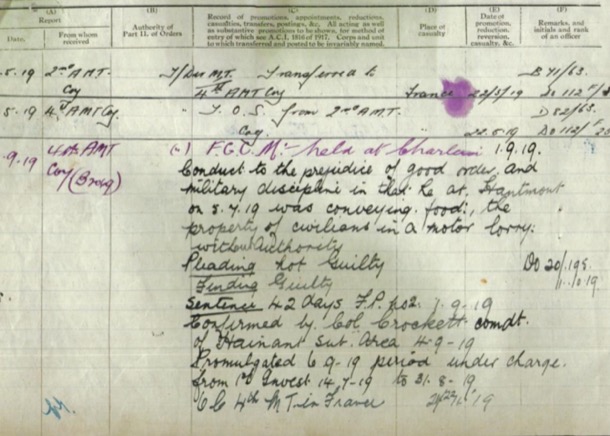 (A)
Report
Date.
From whom received
(B)
Authority of Part II. of Orders
(C)
Record of promotions, appointments, reductions, casualties, transfers, postings, &c. All acting as well as substantive promotions to be shown, for method of entry of which see A.C.I. 1816 of 1917. Corps and unit to which transferred and posted to be invariably named.
(D)
Place of casualty
(E)
Date of promotion, reduction, reversion, casualty, &c.
(F)
Remarks, and initials and rank of an officer
.5.19 2nd A.M.T. Coy M.T. Transferred to B 71/63.
4th AMT Coy France 22/5/19 Do 112
5.19 4th AMT Coy. T.O.S. from 2nd A.M.T. " D 82/63.
Coy. 22.5.19 Do 112/
.9.19 4th AMT F.G.C.M. held at 1.9.19.
Coy Conduct to the prejudice of good order and
military discipline in that he at Hautmont
on 8.7.19 was conveying food, the
property of civilians in a motor lorry
without authority
Pleading not Guilty Do 20/
Finding Guilty
Sentence 42 days F.P. no2. 1-9-19
Confirmed by Col Crockett comdt.
of Hainant sub. Area 4-9-19
Promulgated 6-9-19 period under charge.
from 1st Invest 14-7-19 to 31-8-19
4th MT in France